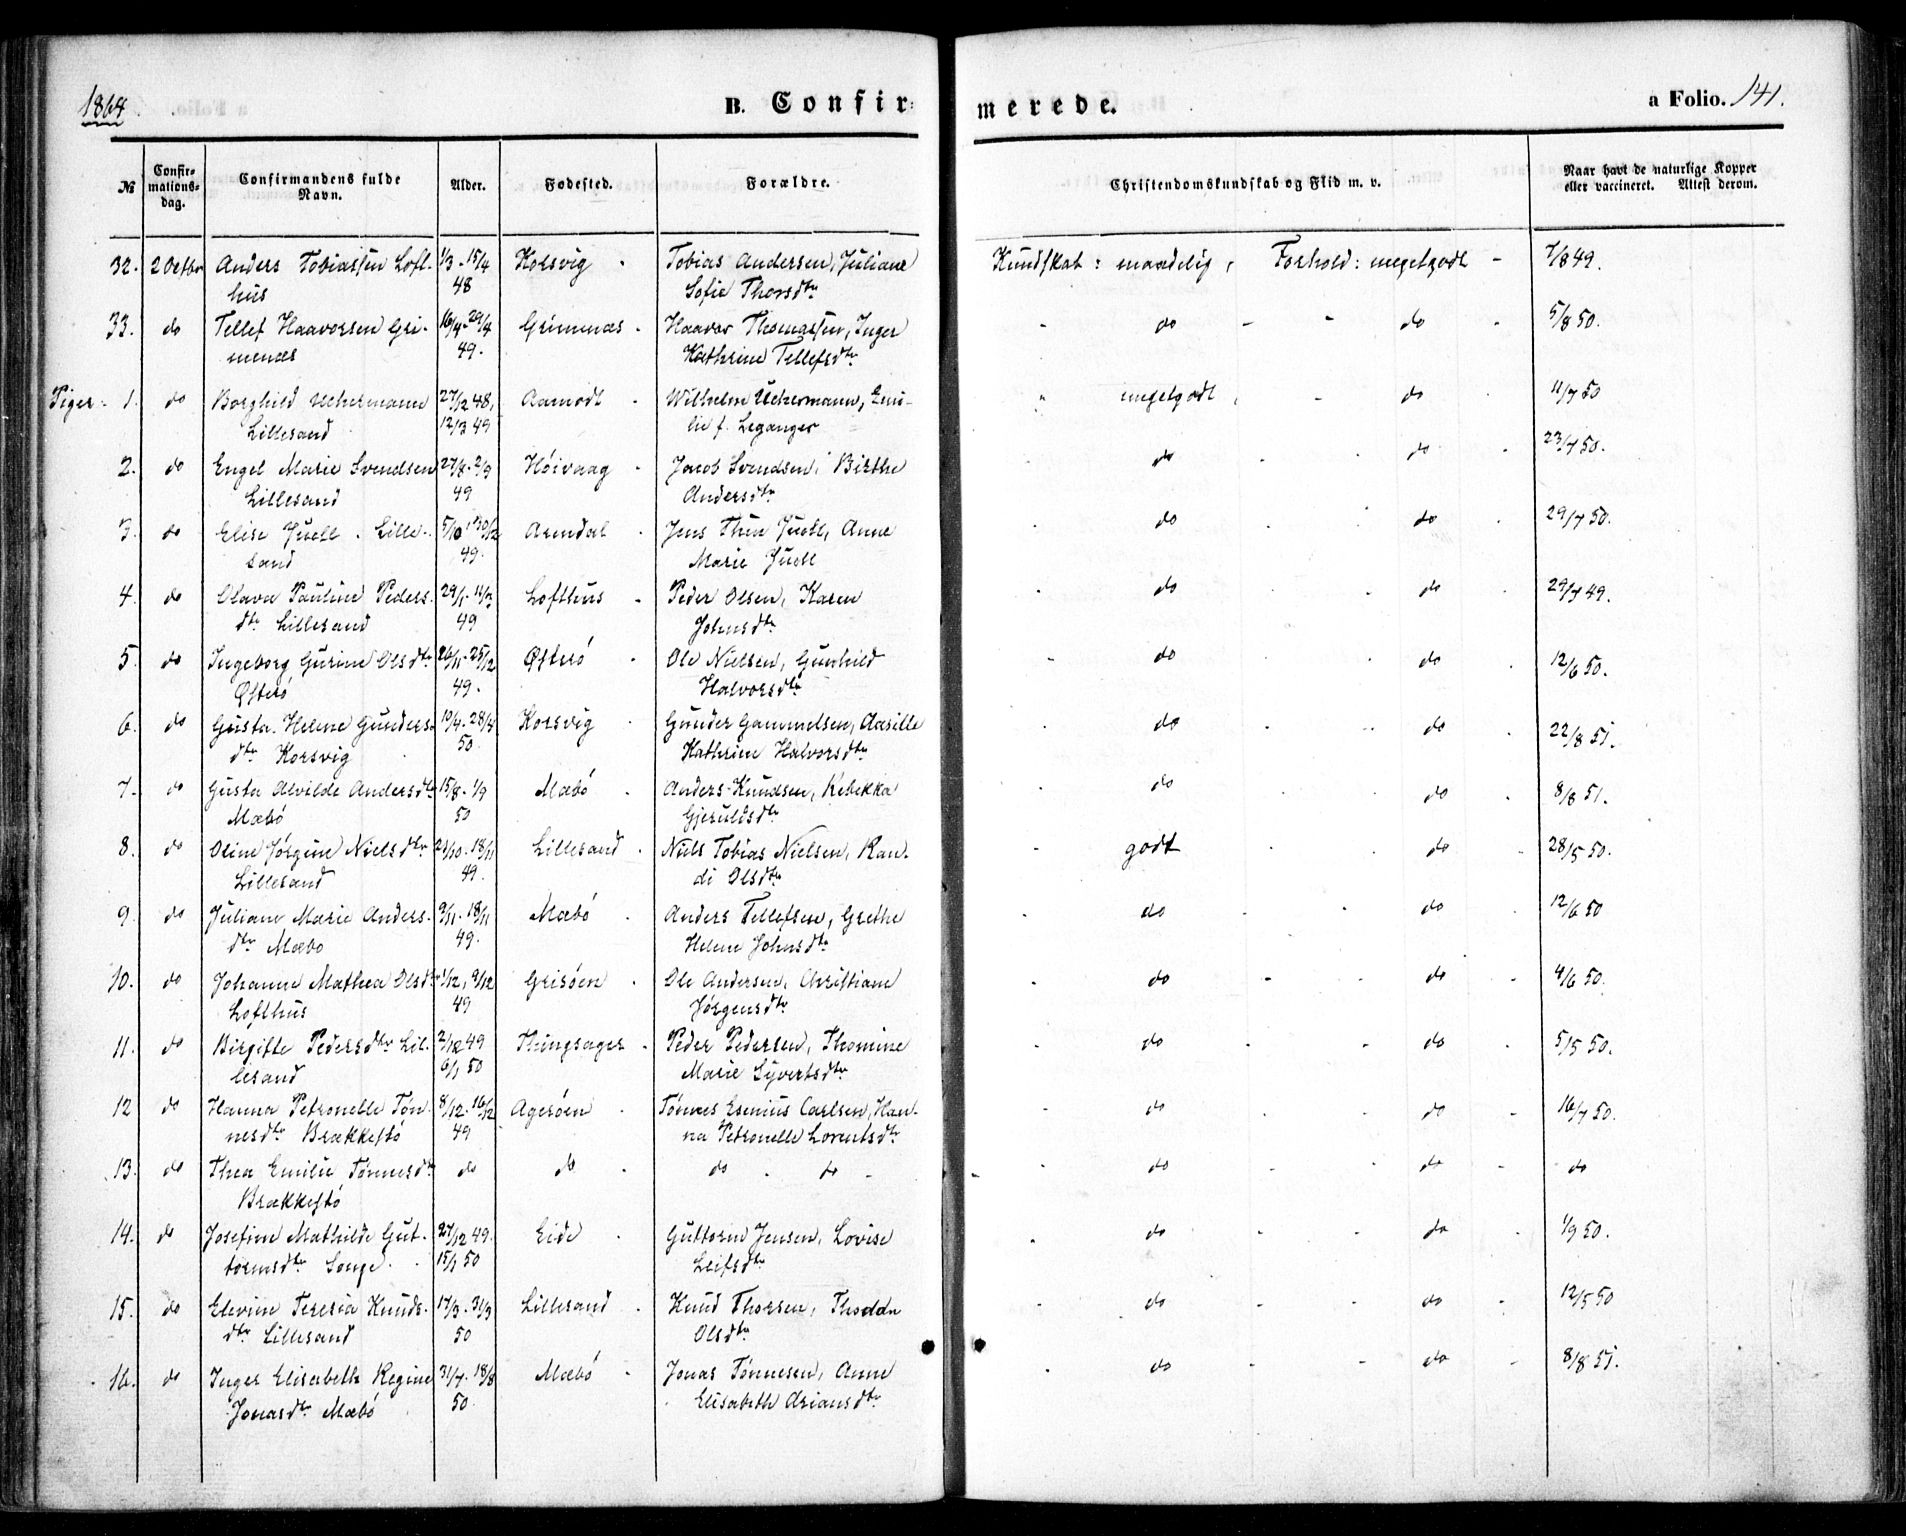 1864
B. Confir-
merede.
a Folio. 141.
№
Confir-
mations-
dag.
Confirmandens fulde
Navn.
Alder.
Fødested.
Forældre.
Christendomskundskab og Flid m. v.
Naar havt de naturlige Kopper
eller vaccineret. Attest derom.
32. 2 Octbr Anders Tobiassen Loft- 1/3 - 15/4 Korsvig - Tobias Andersen, Juliane Kundskab: maadelig, Forhold: megetgodt - 7/8 49.
hus 48 Sofie Thorsdtr
33. do Tellef Haavorsen Gri- 16/4 - 29/4 Grimenæs - Haavor Thomassen, Inger - do - - do - 5/8 50.
menæs 49. Kathrine Tellefsdtr
Piger - 1. do Borghild Uchermann 27/12 48, Aamodt - Wilhelm Uchermann, Emi- " megetgodt, - do - 11/7 50
Lillesand 12/3 49 lie f. Leganger
2. do Engel Marie Svendsen 27/8 - 2/9 Høivaag - Jacob Svendsen, Birthe do - do - 23/7 50.
Lillesand 49 Andersdtr
3. do Elise Juell. Lille- 5/10, 30/12 Arendal - Jens Thue Juell, Anne - do - do - 29/7 50.
sand 49. Marie Juell
4. do Olava Pauline Peders- 29/1 - 11/3 Lofthus - Peder Olsen, Karen - do - do - 29/7 49.
dtr Lillesand 49 Johnsdtr
5. do Ingeborg Gurine Olsdtr 26/11 - 25/12 Østerø - Ole Nielsen, Gunhild - do - do - 12/6 50.
Østerø 49. Halvorsdtr
6. do Gusta Helene Gunders- 19/4 - 28/4 Korsvig - Gunder Gammelsen, Aasille - do - do - 22/8 51.
dtr Korsvig 50. Kathrine Halvorsdtr
7. do Gusta Alvilde Andersdtr 15/8 - 1/9 Mæbø - Anders Knudsen, Rebekka - do - do - 8/8 51.
Mæbø 50 Gjeruldsdtr
8. do Oline Jørgine Nielsdtr 21/10 - 18/11 Lillesand - Niels Tobias Nielsen, Ran- - godt - do - 28/5 50.
Lillesand 49. di Olsdtr
9. do Juliane Marie Anders- 9/11 - 18/11 Mæbø - Anders Tellefsen, Grethe - do - do - 12/6 50
dtr Mæbø 49. Helene Johnsdtr
10. do Johanne Mathea Olsdtr 1/12, 9/12 Grisøen - Ole Andersen, Christiane - do - do - 4/6 50.
Lofthus 49 Jørgensdtr
11. do Birgitte Pedersdtr Lil- 2/12 49 Thingsager - Peder Pedersen, Thomine - do - do - 5/5 50.
lesand 6/1 50 Marie Syvertsdtr
12 do Hanna Petronelle Tøn- 8/12 - 16/12 Agerøen - Tønnes Esenius Carlsen, Han- - do - do - 16/7 50.
nesdtr Brækkestø 49 na Petronelle Lorentsdtr
13. do Thea Emilie Tønnesdtr do do - do - do - - do - do - do
Brækkestø
14. do Josefine Mathilde Gut- 27/12 49. Eide - Guttorm Jensen, Lovise - do - do - 1/9 50.
tormsdtr Songe. 15/1 50 Leifsdtr
15. do Elevine Teresia Knuds- 17/3 - 31/3 Lillesand - Knud Thorsen, Thoddn - do - do - 12/5 50
dtr Lillesand 50 Olsdtr
16. do Inger Elisabeth Regine 31/7 - 18/8 Mæbø - Jonas Tønnesen, Anne - do - do - 8/8 51.
Jonasdtr Mæbø 50. Elisabeth Ariansdtr